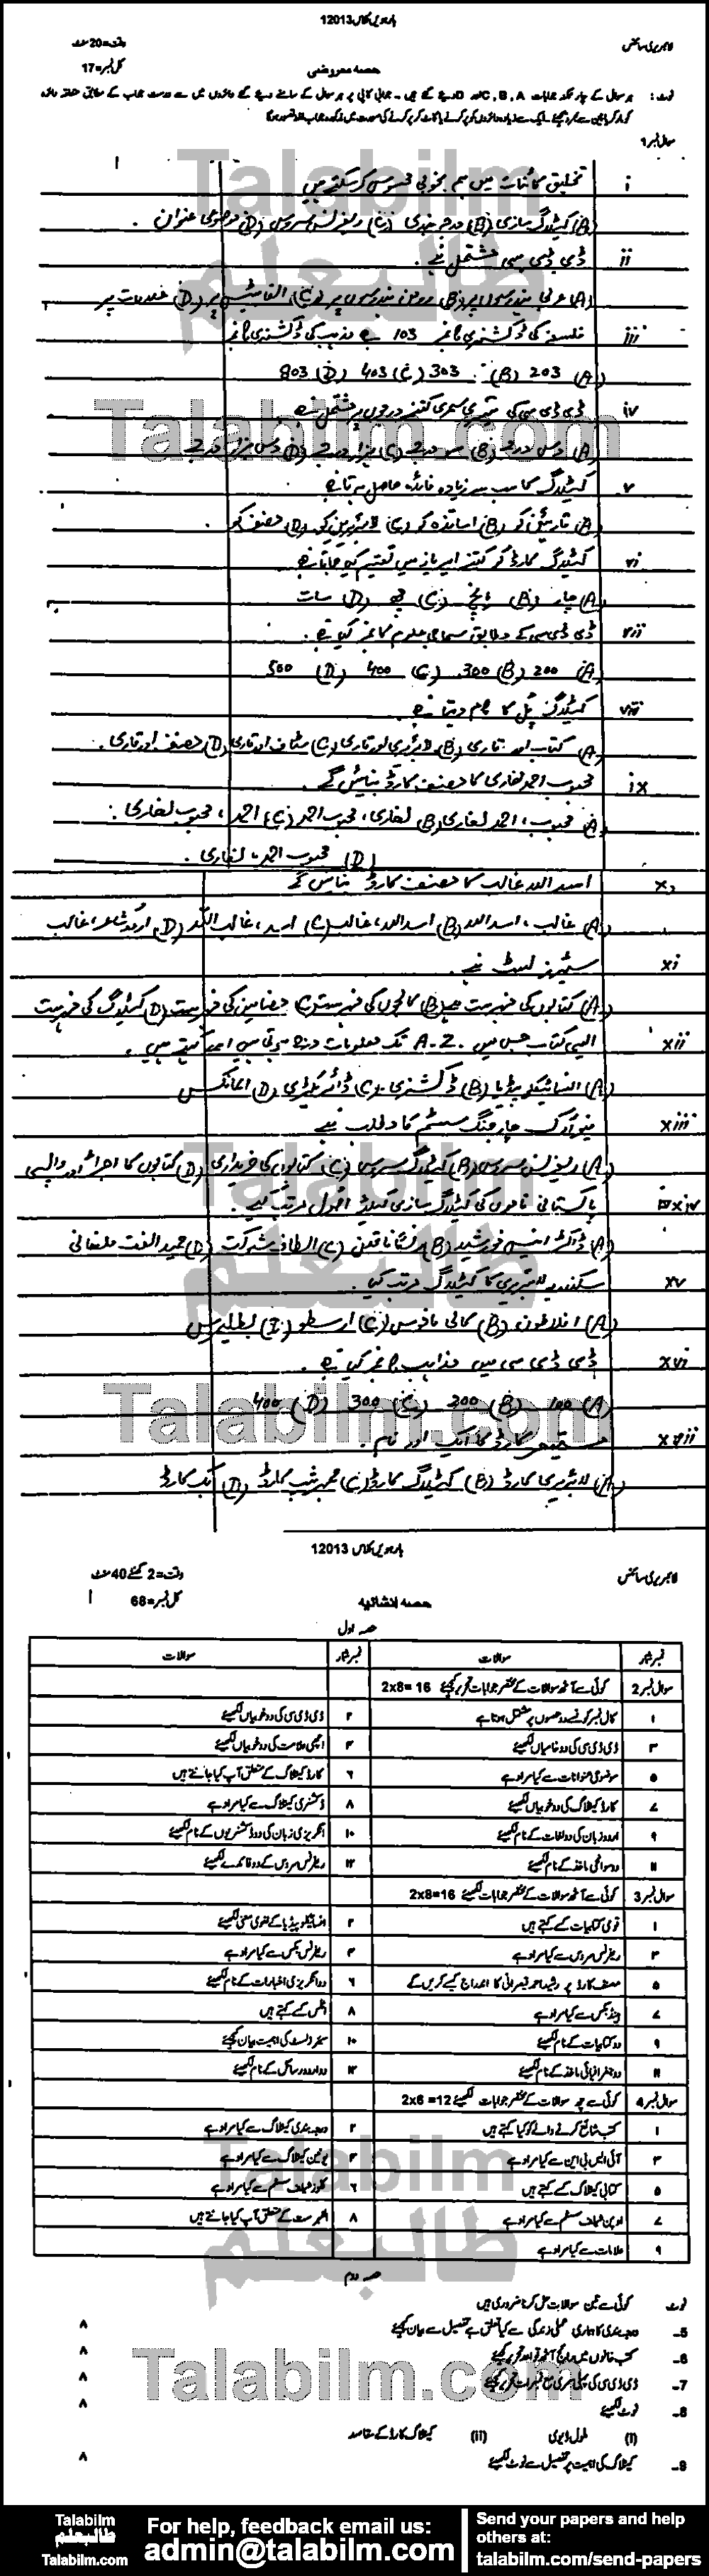 بارہویں کلاس 12013
لائبریری سائنس
وقت=20 منٹ
حصہ معروضی
کل نمبر=17
نوٹ: ہر سوال کے چار ممکنہ جوابات C, B, A اور D دیئے گئے ہیں۔ جوابی کاپی پر ہر سوال کے سامنے دیئے گئے دائروں میں سے درست جواب کے مطابق متعلقہ دائرہ
سوال نمبر 1
i تخلیق کائنات میں ہم بخوبی محسوس کر سکتے ہیں
(A) کیٹلاگ سازی (B) درجہ بندی (C) ریفرنس سروس (D) موضوعی عنوان
ii ڈی ڈی سی مشتمل ہے۔
(A) عربی ہندسوں پر (B) رومن ہندسوں پر (C) الفابیٹس پر (D) علامات پر
iii فلسفے کی ڈکشنری کا نمبر 103 ہے مذہب کی ڈکشنری کا نمبر
(A) 203 (B) 303 (C) 403 (D) 803
iv ڈی ڈی سی کی تیسری سمری کتنے درجوں پر مشتمل ہے
(A) دس درجے (B) سو درجے (C) ہزار درجے (D) دس ہزار درجے
v کیٹلاگ کا سب سے زیادہ فائدہ حاصل ہوتا ہے
(A) قارئین کو (B) اساتذہ کو (C) لائبریرین کو (D) مصنف کو
vi کیٹلاگ کارڈ کو کتنے ایریاز میں تقسیم کیا جاتا ہے
(A) چار (B) پانچ (C) چھ (D) سات
vii ڈی ڈی سی کے مطابق سماجی علوم کا نمبر کیا ہے۔
(A) 200 (B) 300 (C) 400 (D) 500
viii کیٹلاگ پُل کا کام دیتا ہے۔
(A) کتاب اور قاری (B) لائبریری اور قاری (C) سٹاف اور قاری (D) مصنف اور قاری۔
ix محبوب احمد لغاری کا مصنف کارڈ بنائیں گے۔
(A) محبوب، احمد لغاری (B) لغاری، محبوب احمد (C) احمد، محبوب لغاری۔
(D) محبوب احمد، لغاری۔
x اسد اللہ غالب کا مصنف کارڈ بنائیں گے
(A) غالب، اسد اللہ (B) اسد اللہ، غالب (C) اسد، غالب اللہ (D) اردو شاعر، غالب
xi سٹیئرز لسٹ ہے۔
(A) کتابوں کی فہرست ہے (B) کالجوں کی فہرست (C) مضامین کی فہرست (D) کیٹلاگ کی فہرست
xii ایسی کتاب جس میں A-Z تک معلومات درج ہوتی ہیں اسے کہتے ہیں۔
(A) انسائیکلوپیڈیا (B) ڈکشنری (C) ڈائریکٹری (D) المانکس
xiii نیوآرک چارجنگ سسٹم کا مطلب ہے
(A) ریفرنس سروس (B) کیٹلاگ سروس (C) کتابوں کی خریداری (D) کتابوں کا اجراء اور واپسی
xiv پاکستانی ناموں کی کیٹلاگ سازی کیلئے اصول مرتب کیے۔
(A) ڈاکٹر انیس خورشید (B) رنگاناتھن (C) الطاف شوکت (D) حمید الفت ملغانی
xv سکندریہ لائبریری کا کیٹلاگ مرتب کیا۔
(A) افلاطون (B) کالی ماخوس (C) ارسطو (D) بطلیموس
xvi ڈی ڈی سی میں مذاہب کا نمبر کیا ہے۔
(A) 100 (B) 200 (C) 300 (D) 400
xvii مستعیر کارڈ کا ایک اور نام۔
(A) لائبریری کارڈ (B) کیٹلاگ کارڈ (C) ممبرشپ کارڈ (D) بک کارڈ
بارہویں کلاس 12013
لائبریری سائنس
وقت=2 گھنٹے 40 منٹ
حصہ انشائیہ
کل نمبر=68
حصہ اول
نمبر شمار سوالات نمبر شمار سوالات
سوال نمبر 2 کوئی سے آٹھ سوالات کے مختصر جوابات تحریر کیجئے 2x8= 16
۱ کال نمبر کونسے دو حصوں پر مشتمل ہوتا ہے ۲ ڈی ڈی سی کی دو خوبیاں لکھیئے
۳ ڈی ڈی سی کی دو خامیاں لکھیئے ۴ اچھی علامت کی دو خوبیاں لکھیئے
۵ موضوعی عنوانات سے کیا مراد ہے ۶ کارڈ کیٹلاگ کے متعلق آپ کیا جانتے ہیں
۷ کارڈ کیٹلاگ کی دو خوبیاں لکھیئے ۸ ڈکشنری کیٹلاگ سے کیا مراد ہے
۹ اردو زبان کی دو لغات کے نام لکھیئے ۱۰ انگریزی زبان کی دو ڈکشنریوں کے نام لکھیئے
۱۱ دو سوانحی ماخذ کے نام لکھیئے ۱۲ ریفرنس سروس کے دو فائدے لکھیئے
سوال نمبر 3 کوئی سے آٹھ سوالات کے مختصر جوابات لکھیئے 2x8=16
۱ قومی کتابیات کسے کہتے ہیں ۲ انسائیکلوپیڈیا کے لغوی معنی لکھیئے
۳ ریفرنس سروس سے کیا مراد ہے ۴ ریفرنس بکس سے کیا مراد ہے
۵ مصنف کارڈ پر رشید احمد قیصرانی کا اندراج کیسے کریں گے ۶ دو انگریزی اخبارات کے نام لکھیئے
۷ ہینڈ بکس سے کیا مراد ہے ۸ اٹلس کسے کہتے ہیں
۹ دو کتابیات کے نام لکھیئے ۱۰ سیئرز لسٹ کی اہمیت بیان کیجئے
۱۱ دو جغرافیائی ماخذ کے نام لکھیئے ۱۲ دو اردو رسائل کے نام لکھیئے
سوال نمبر 4 کوئی سے چھ سوالات کے مختصر جوابات لکھیئے 2x6 =12
۱ کتب شائع کرنے والے کو کیا کہتے ہیں ۲ درجہ بندی کیٹلاگ سے کیا مراد ہے
۳ آئی ایس بی این سے کیا مراد ہے ۴ یونین کیٹلاگ سے کیا مراد ہے
۵ کتابی کیٹلاگ کسے کہتے ہیں ۶ کلوز شیلف سسٹم سے کیا مراد ہے
۷ اوپن شیلف سسٹم سے کیا مراد ہے ۸ الفہرست کے متعلق آپ کیا جانتے ہیں
۹ علامات سے کیا مراد ہے
حصہ دوم
نوٹ کوئی سے تین سوالات حل کرنا ضروری ہیں
5۔ درجہ بندی کا ہماری عملی زندگی سے کیا تعلق ہے تفصیل سے بیان کیجئے ۸
6۔ کتب خانوں میں رائج آٹھ قواعد تحریر کیجئے ۸
7۔ ڈی ڈی سی کی پہلی سمری مع نمبرات تحریر کیجئے ۸
8۔ نوٹ لکھیئے ۸
(i) ملول ڈیوی (ii) کیٹلاگ کارڈ کے مقاصد
9۔ کیٹلاگ کی اہمیت پر تفصیل سے نوٹ لکھیئے ۸
Talabilm
طالبعلم
Talabilm.com
For help, feedback email us:
admin@talabilm.com
Send your papers and help
others at:
talabilm.com/send-papers